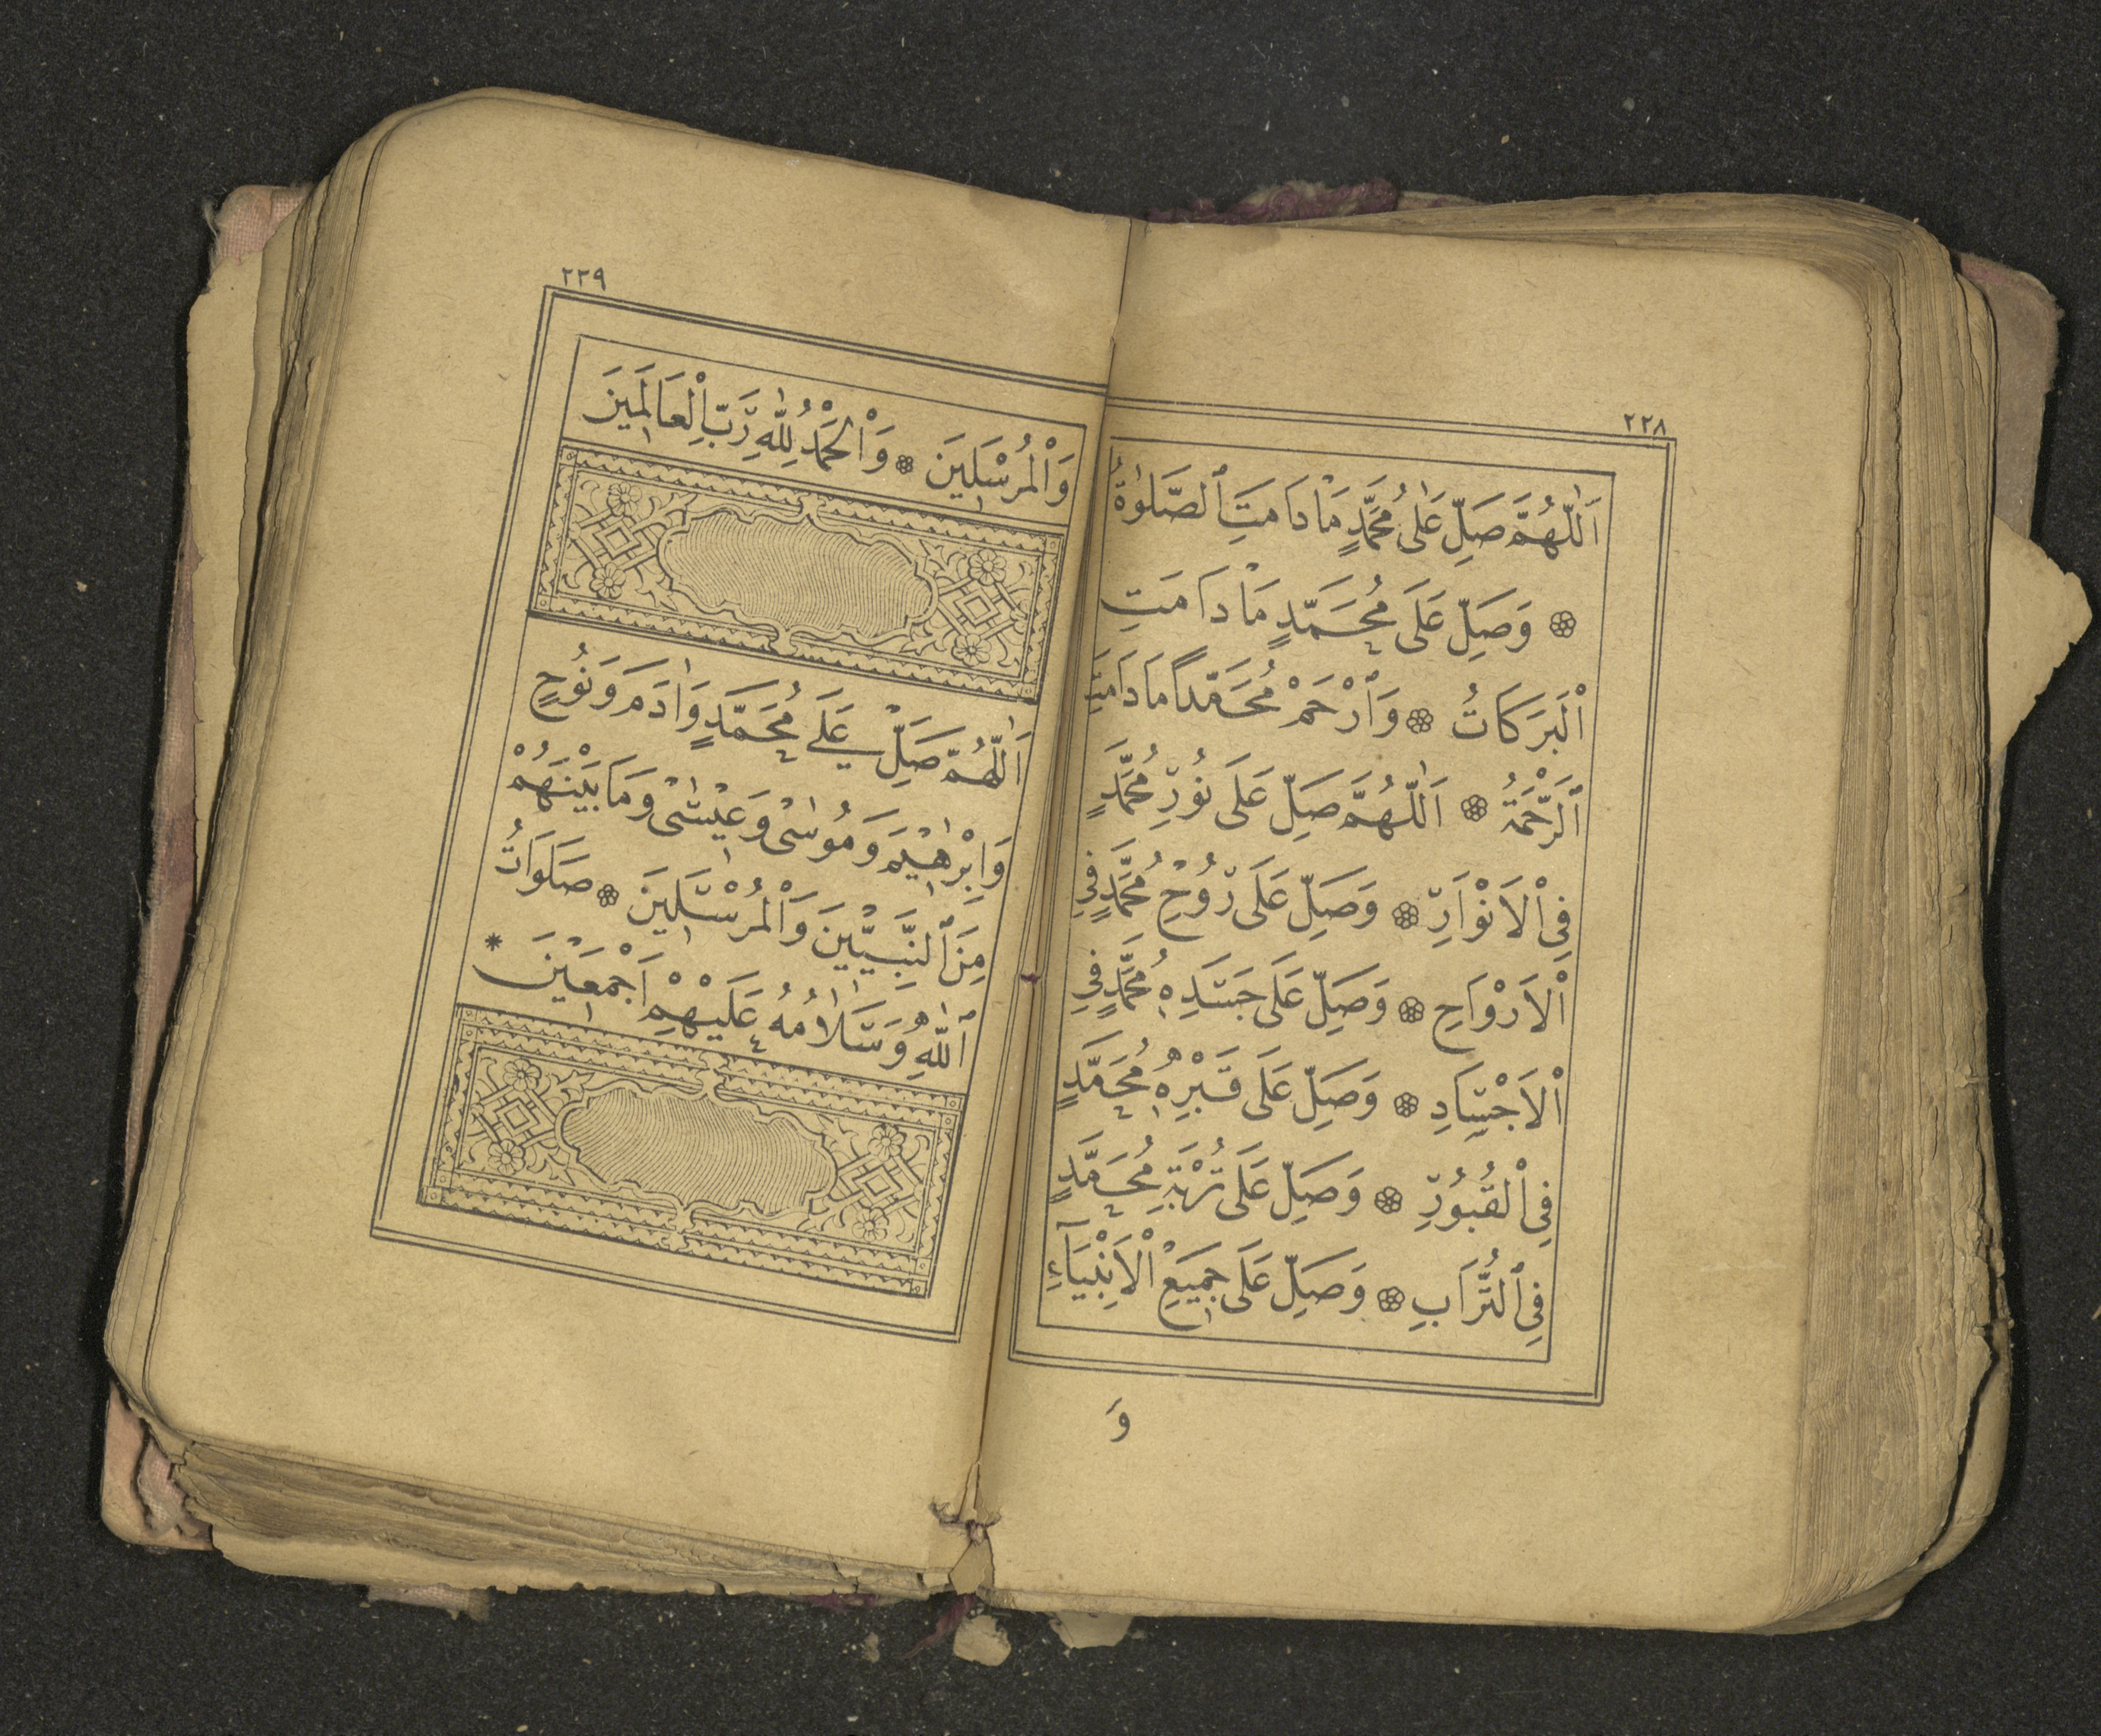 ٢٢٨
اَللّٰهُمَّ صَلِّ عَلٰى مُحَمَّدٍ مَا دَامَتِ ٱلصَّلٰوةُ
وَصَلِّ عَلَى مُحَمَّدٍ مَا دَامَتِ
اْلبَرَكَاتُ ۞ وَٱرْحَمْ مُحَمَّداً مَا دَامَتِ
ٱلرَّحْمَةُ ۞ اَللّٰهُمَّ صَلِّ عَلَى نُورِ مُحَمَّدٍ
فِى اْلاَنْوَارِ ۞ وَصَلِّ عَلَى رُوحِ مُحَمَّدٍ فِى
اْلاَرْوَاحِ ۞ وَصَلِّ عَلَى جَسَدِ مُحَمَّدٍ فِى
اْلاَجْسَادِ ۞ وَصَلِّ عَلَى قَبْرِ مُحَمَّدٍ
فِى اْلقُبُورِ ۞ وَصَلِّ عَلَى تُرْبَةِ مُحَمَّدٍ
فِى ٱلتُّرَابِ ۞ وَصَلِّ عَلَى جَمِيعِ اْلاَنْبِيَآءِ
وَ
٢٢٩
وَاْلمُرْسَلِينَ ۞ وَاْلحَمْدُ لِلّٰهِ رَبِّ اْلعَالَمِينَ
اَللّٰهُمَّ صَلِّ عَلَى مُحَمَّدٍ وَاٰدَمَ وَنُوحٍ
وَاِبْرٰهِيمَ وَمُوسٰى وَعِيسٰى وَمَا بَيْنَهُمْ
مِنَ ٱلنَّبِيِّينَ وَاْلمُرْسَلِينَ ۞ صَلَوَاتُ
ٱللّٰهِ وَسَلاٰمُهُ عَلَيْهِمْ اَجْمَعِينَ *